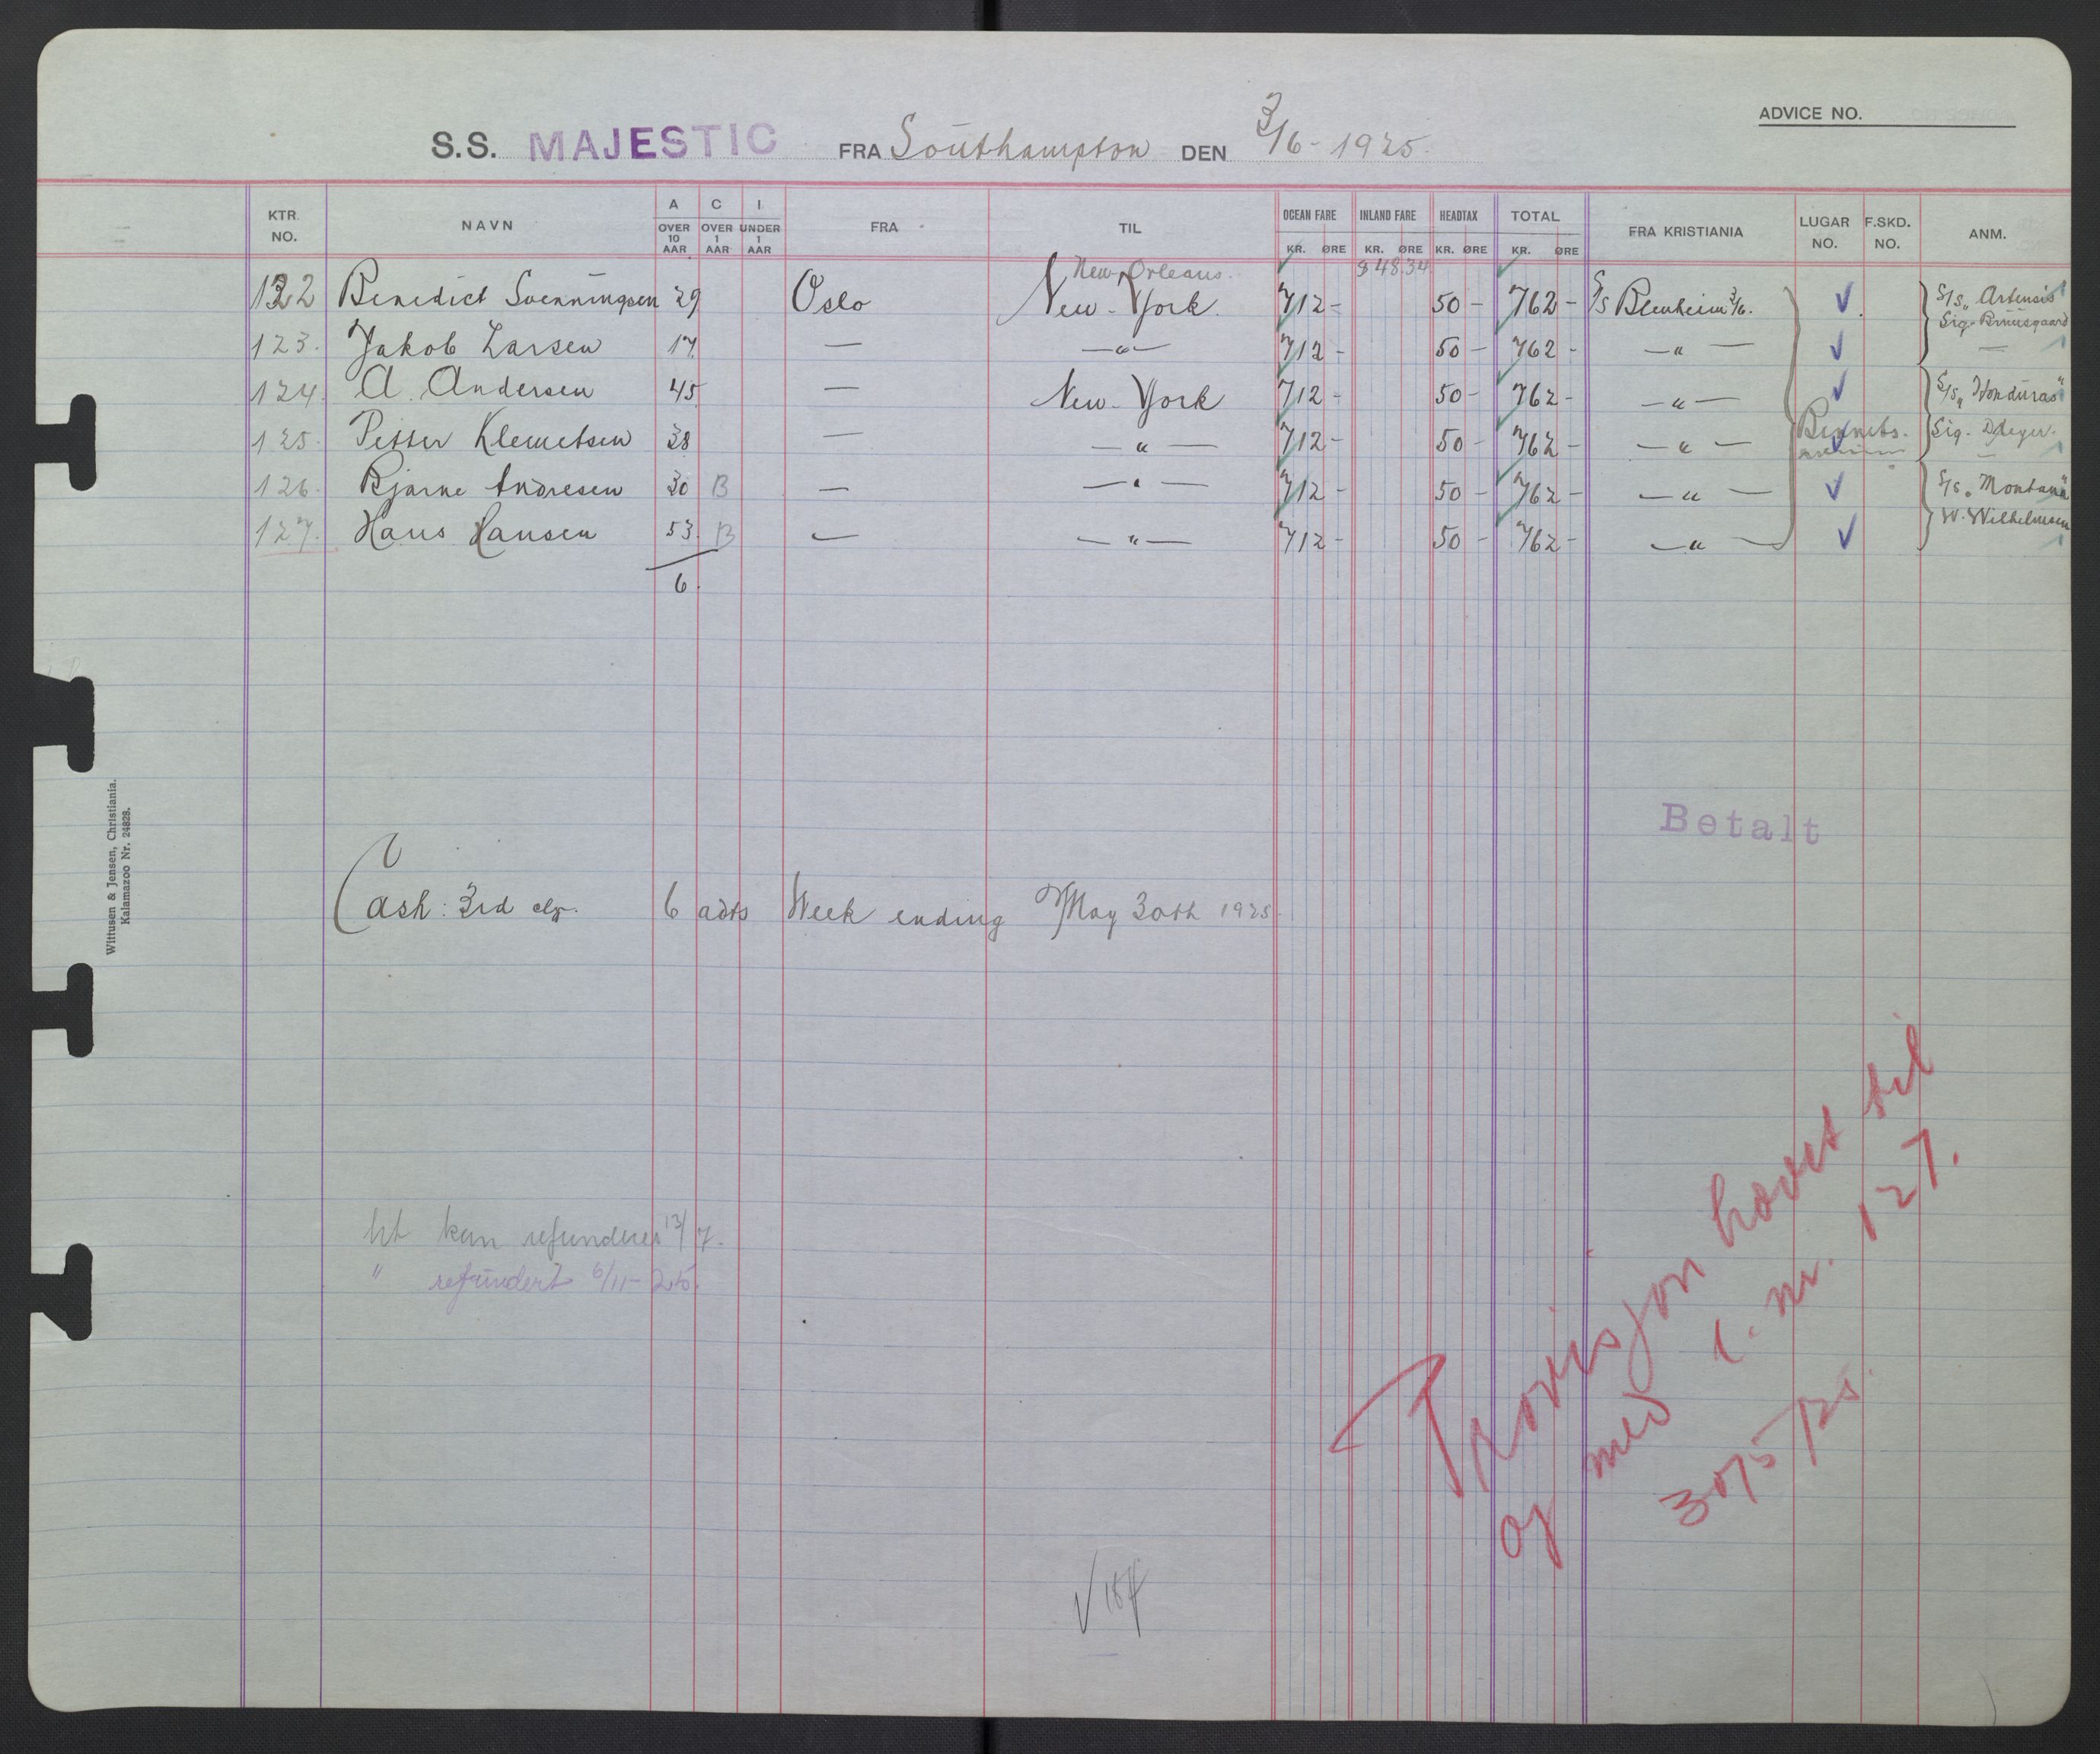 ADVICE NO.
S.S. MAJESTIC FRA Southampton DEN 3/6 - 1925.
KTR. NO. NAVN A OVER 10 AAR C OVER 1 AAR I. UNDER 1 AAR FRA TIL OCEAN FARE KR. ØRE INLAND FARE KR. ØRE HEADTAX KR. ØRE TOTAL KR. ØRE FRA KRISTIANIA LUGAR NO. F.SKD. NO. ANM.
New-Orleans. $ 48.34
122 Benedict Svenningsen 29 Oslo New-York. 712 - 50 - 762 - S/S Blenheim 3/6. S/S „Artensis"
Sig. Bruusgaard
123. Jakob Larsen 17 — —"— 712 - 50 - 762 - —"— —
124. A. Andersen 45 — New-York 712 - 50 - 762 - —"— S/S „Honduras"
125. Petter Klemetsen 38 — —"— 712 - 50 - 762 - —"— Bennets. Sig. Meyer.
126. Bjarne Andresen 30 B — —"— 712 - 50 - 762 - —"— S/S „Montana"
127. Hans Hansen 53. B — —"— 712 - 50 - 762 - —"— W. Wilhelmsen
6.
Betalt
Cash: 3rd clp. 6 adts Week ending May 30th 1925.
Wittusen & Jensen, Christiania.
Kalamazoo Nr. 24828.
Ht kan refunderes 13/7.
" refundert 6/11-25.
Provisjon hævet til
og med c. nr. 127.
30/5/25.
184